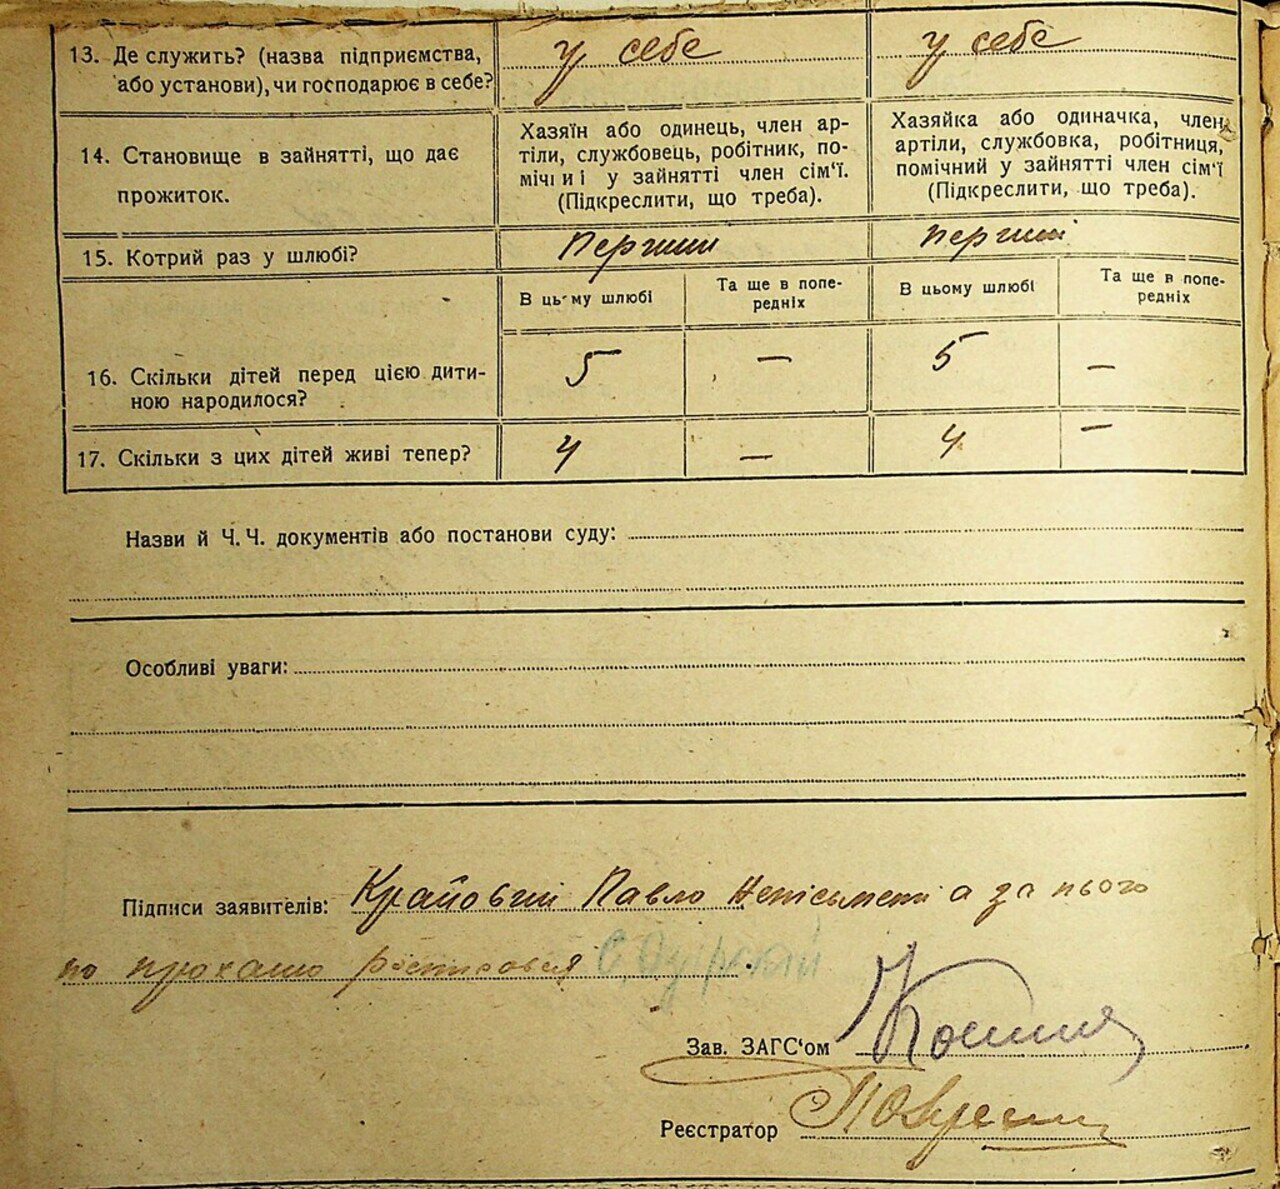 13. Де служить? (назва підприємства, або установи), чи господарює в себе?
у себе
у себе
14. Становище в зайнятті, що дає прожиток.
Хазяїн або одинець, член ар-
тіли, службовець, робітник, по-
мічн и і у зайнятті член сім'ї.
(Підкреслити, що треба).
Хазяйка або одиначка, член
артіли, службовка, робітниця,
помічний у зайнятті член сім'ї
(Підкреслити, що треба).
15. Котрий раз у шлюбі?
Перший
перший
В цьму шлюбі
Та ще в попе-
редніх
В цьому шлюбі
Та ще в попе-
редніх
16. Скільки дітей перед цією дити-
ною народилося?
5 — 5 —
17. Скільки з цих дітей живі тепер?
4 — 4 —
Назви й Ч. Ч. документів або постанови суду:
Особливі уваги:
Підписи заявителів: Крайовий Павло а за нього
по
Зав. ЗАГС'ом
Реєстратор